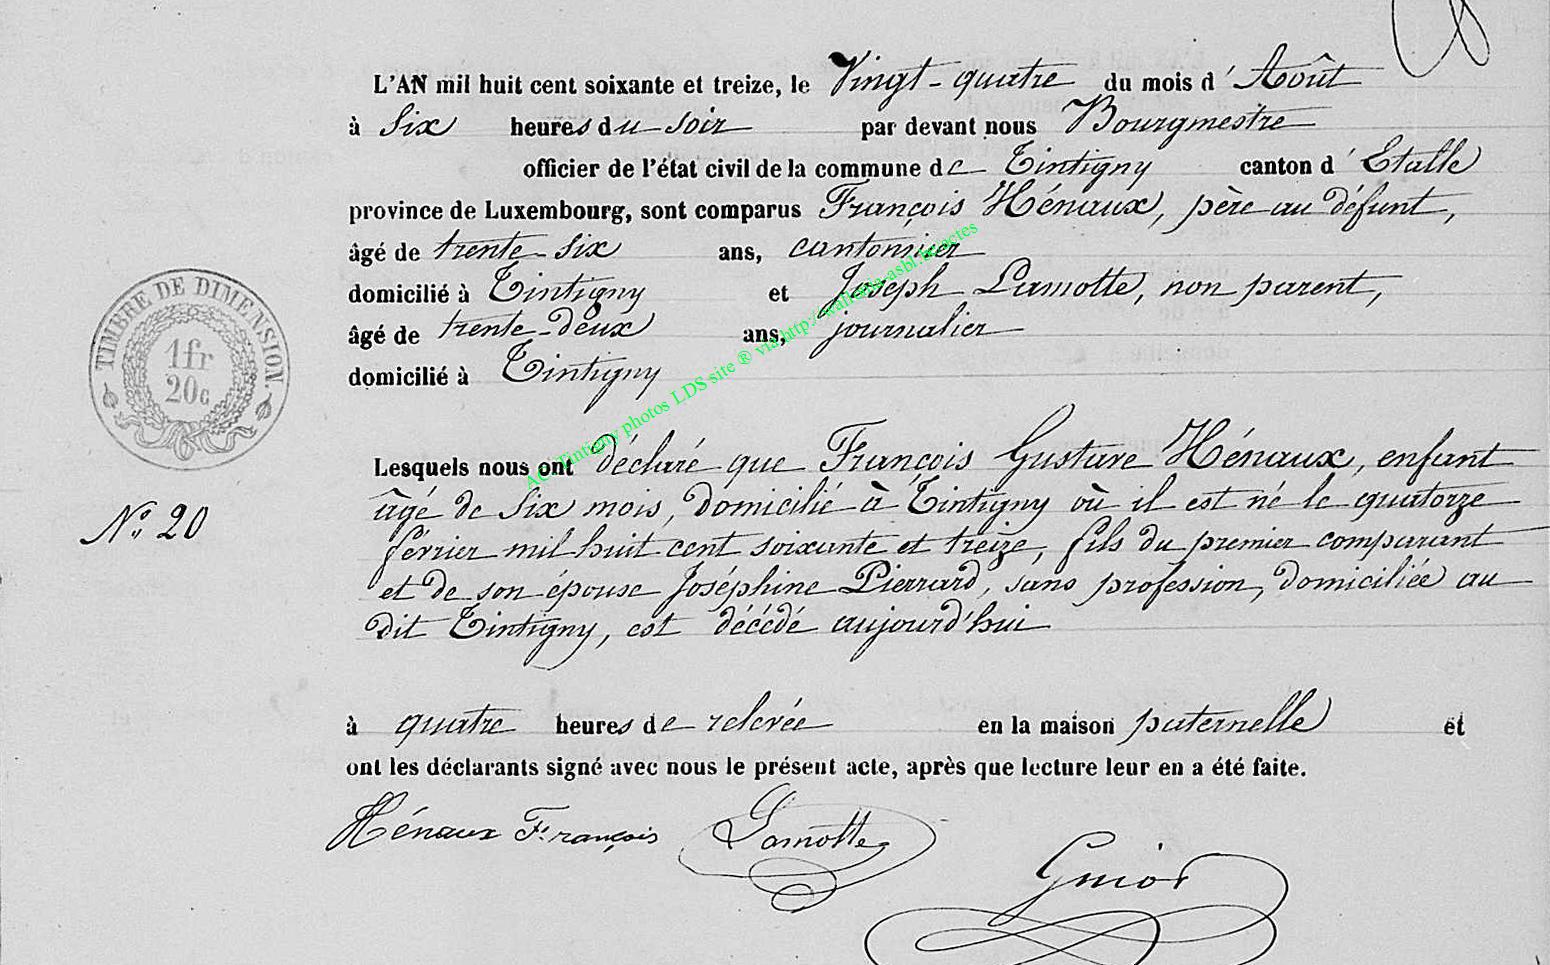 L'AN mil huit cent soixante et treize, le Vingt-quatre du mois d'Août
à Six heures du soir par devant nous Bourgmestre
officier de l'état civil de la commune de Tintigny canton d'Etalle
province de Luxembourg, sont comparus François Hénaux, père au défunt,
âgé de trente-six ans, cantonnier
domicilié à Tintigny et Joseph Lamotte, non parent,
âgé de trente-deux ans, journalier
domicilié à Tintigny
AC Tintigny photos LDS site ® via http://wallonia-asbl.be/actes
TIMBRE DE DIMENSION.
1fr
20c
Lesquels nous ont déclaré que François Gustave Hénaux, enfant
N° 20
âgé de Six mois, domicilié à Tintigny où il est né le quatorze
février mil huit cent soixante et treize, fils du premier comparant
et de son épouse Joséphine Pierrard, sans profession, domiciliée au
dit Tintigny, est décédé aujourd'hui
à quatre heures de relevée en la maison paternelle et
ont les déclarants signé avec nous le présent acte, après que lecture leur en a été faite.
Hénaux François Lamotte